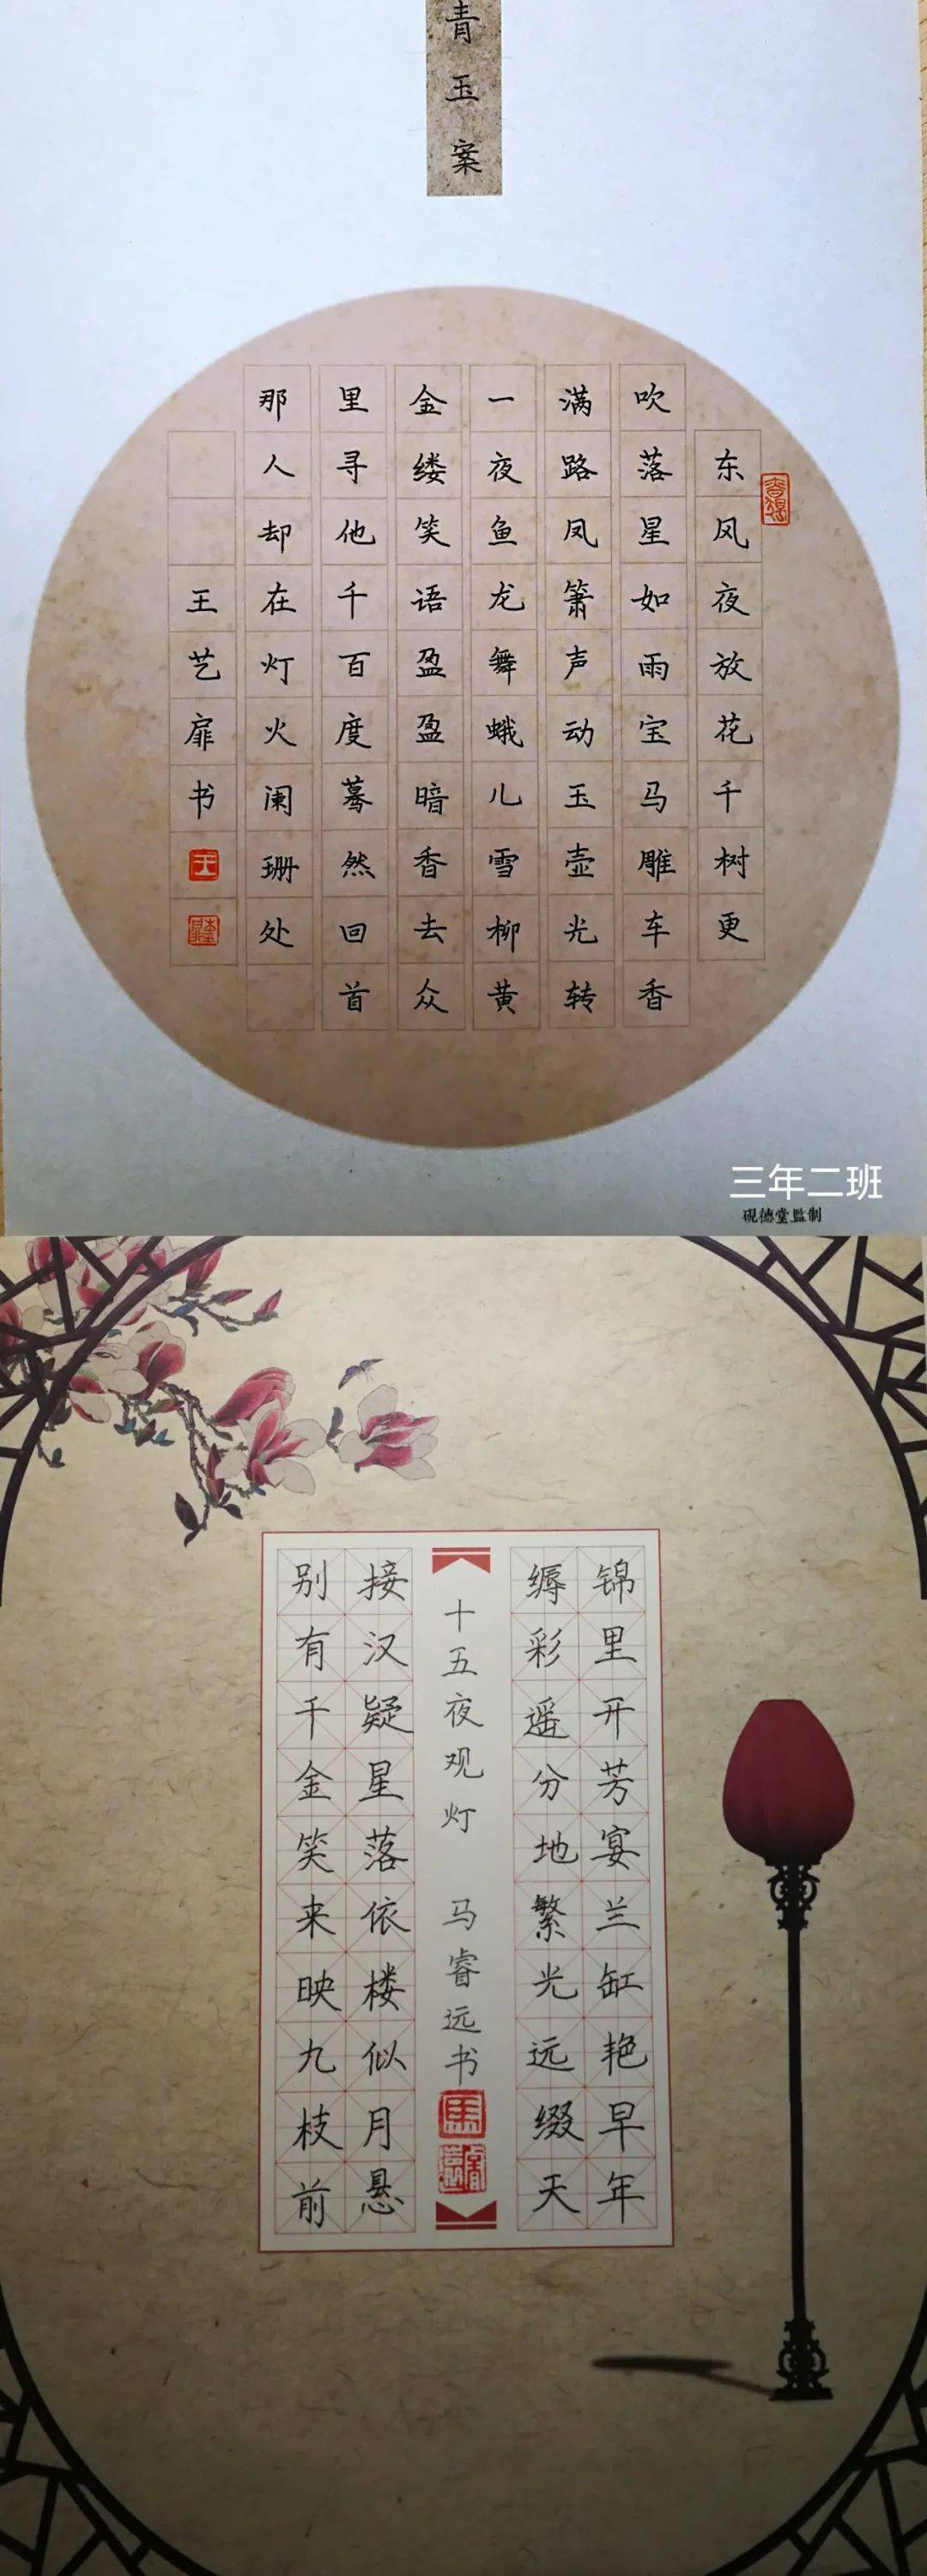 青玉案
东风夜放花千树更
吹落星如雨宝马雕车香
满路凤箫声动玉壶光转
一夜鱼龙舞蛾儿雪柳黄
金缕笑语盈盈暗香去众
里寻他千百度蓦然回首
那人却在灯火阑珊处
王艺扉书
王
三年二班
硯德堂監制
锦里开芳宴兰缸艳早年
缛彩遥分地繁光远缀天
十五夜观灯 马睿远书
馬
睿遠
接汉疑星落依楼似月悬
别有千金笑来映九枝前